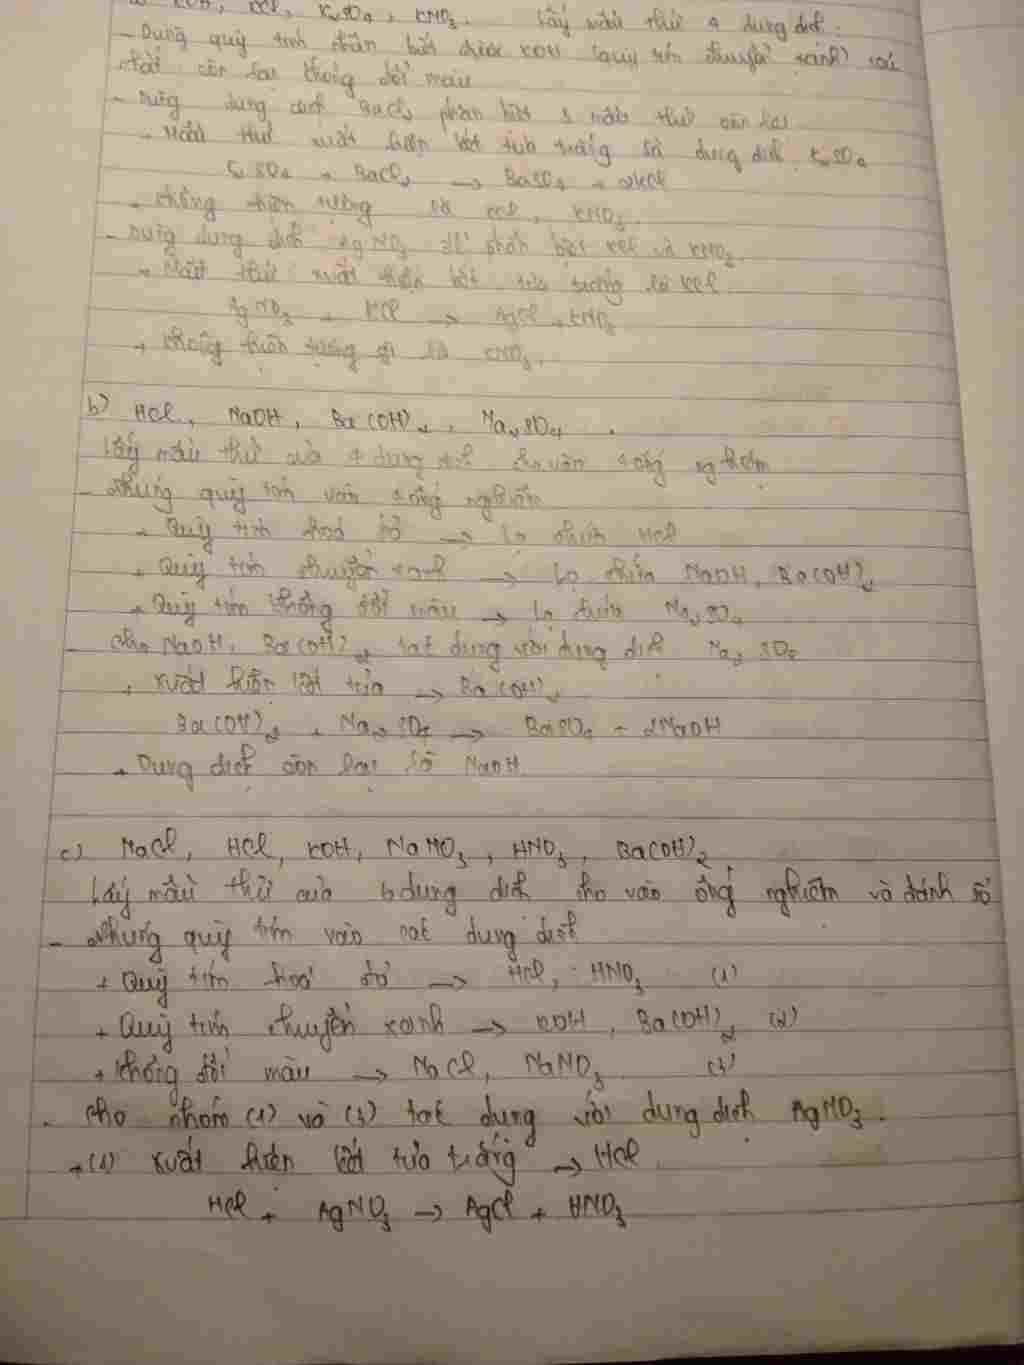 a) KOH, KCl, K₂SO₄, KNO₃. Lấy mẫu thử 4 dung dịch.
- Dùng quỳ tím phân biệt được KOH (quỳ tím chuyển xanh) các
chất còn lại không đổi màu
- Dùng dung dịch BaCl₂ phân biệt 3 mẫu thử còn lại
+ Mẫu thử xuất hiện kết tủa trắng là dung dịch K₂SO₄
K₂SO₄ + BaCl₂ → BaSO₄ + 2KCl
+ không hiện tượng là KCl, KNO₃.
- Dùng dung dịch AgNO₃ để phân biệt KCl và KNO₃.
+ Mẫu thử xuất hiện kết tủa trắng là KCl
AgNO₃ + KCl → AgCl + KNO₃
+ không hiện tượng gì là KNO₃.
b) HCl, NaOH, Ba(OH)₂, Na₂SO₄.
Lấy mẫu thử của 4 dung dịch cho vào ống nghiệm
- Nhúng quỳ tím vào ống nghiệm
+ Quỳ tím hoá đỏ → lọ chứa HCl
+ Quỳ tím chuyển xanh → lọ chứa NaOH, Ba(OH)₂
+ Quỳ tím không đổi màu → lọ chứa Na₂SO₄
- cho NaOH, Ba(OH)₂ tác dụng với dung dịch Na₂SO₄
+ xuất hiện kết tủa → Ba(OH)₂
Ba(OH)₂ + Na₂SO₄ → BaSO₄ + 2NaOH
+ Dung dịch còn lại là NaOH
c) NaCl, HCl, KOH, NaNO₃, HNO₃, Ba(OH)₂.
Lấy mẫu thử của 6 dung dịch cho vào ống nghiệm và đánh số
- Nhúng quỳ tím vào các dung dịch
+ Quỳ tím hoá đỏ → HCl, HNO₃ (1)
+ Quỳ tím chuyển xanh → KOH, Ba(OH)₂ (2)
+ không đổi màu → NaCl, NaNO₃ (3)
- cho nhóm (1) và (3) tác dụng với dung dịch AgNO₃.
+ (1) xuất hiện kết tủa trắng → HCl.
HCl + AgNO₃ → AgCl + HNO₃